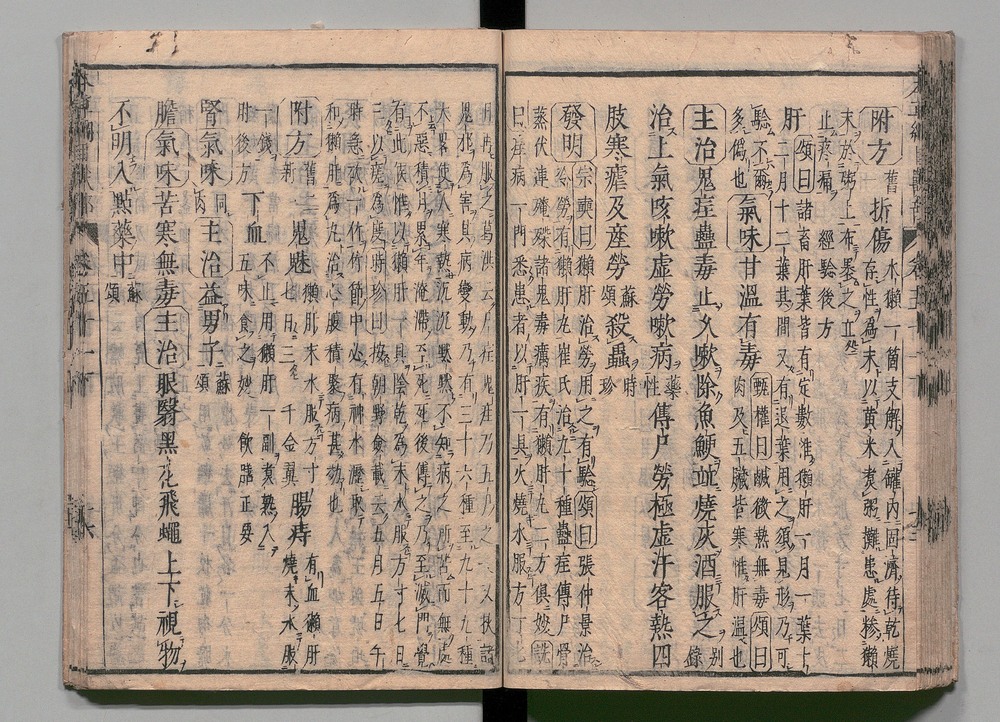 附方 舊一 折傷 水獺一箇支解入罐内固濟待乾燒
存性爲末以黄米煮粥攤患處糝獺
末於粥上布裹之立
止疼痛 經驗後方
肝 頌曰諸畜肝葉皆有定數惟獺肝一月一葉十
二月十二葉其間又有退葉用之須見形乃可
驗不爾
多偽也 氣味甘溫有毒 甄權曰鹹微熱無毒頌曰
肉及五臟皆寒惟肝温也
主治鬼疰蠱毒止久嗽除魚鯁並燒灰酒服之 别錄
治上氣咳嗽虛勞嗽病 藥性 傳尸勞極虛汗客熱四
肢寒瘧及産勞 蘇頌 殺蟲 時珍
發明 宗奭曰獺肝治勞用之有驗頌曰張仲景治
冷勞有獺肝丸崔氏治九十種蠱疰傳尸骨
蒸伏連殗殜諸鬼毒癘疾有獺肝丸二方俱妙詵
曰疰病一門悉患者以肝一具火燒水服方寸匕
日再服之葛洪云尸疰鬼疰乃五尸之一又挾諸
鬼邪爲害其病變動乃有三十六種至九十九種
大畧使人寒熱沉沉默默不知病之所苦而無處
不惡積月累年淹滯至死死後傳人乃至滅門覺
有此候惟以獺肝一具陰乾爲末水服方寸匕日
三以瘥爲度時珍曰按朝野僉載云五月五日午
時急砍一竹竹節中必有神水瀝取
和獺肝爲丸治心腹積聚病甚効也
附方 舊一新二 鬼魅 獺肝末水服方寸
匕日三 千金翼 腸痔 有血獺肝
燒末水服
一錢
肘後方 下血 不止用獺肝一副煮熟入
五味食之妙 飲膳正要
腎氣味 同肉 主治益男子 蘇頌
膽氣味苦寒無毒主治眼翳黑花飛蠅上下視物
不明入點藥中 蘇頌